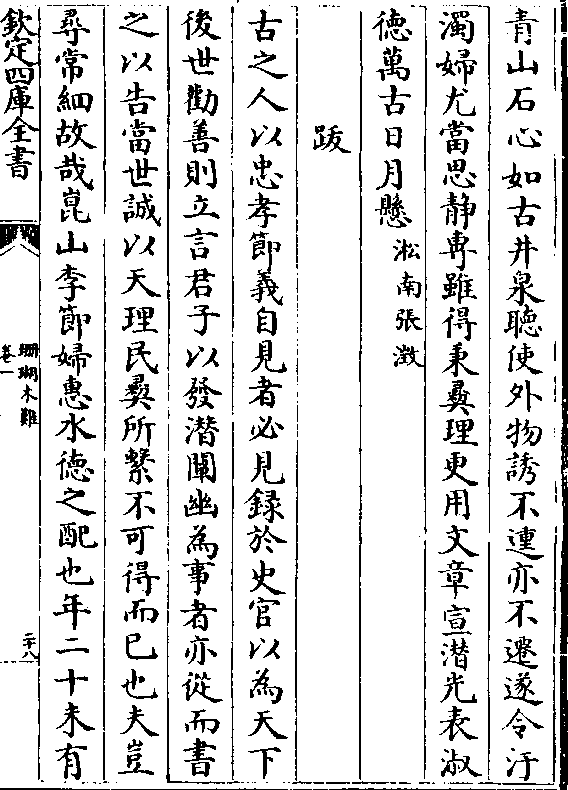 青山石心如古井泉聴使外物誘不連亦不遷遂令汙
濁婦尤當思静専雖得秉彛理更用文章宣潜光表淑
徳萬古日月懸 淞南張澂
跋
古之人以忠孝節義自見者必見録於史官以為天下
後世勸善則立言君子以發潜闡幽為事者亦從而書
之以告當世誠以天理民彛所繫不可得而已也夫豈
尋常細故哉崑山李節婦惠水徳之配也年二十未有
欽定四庫全書
珊瑚木難
卷一
二十八